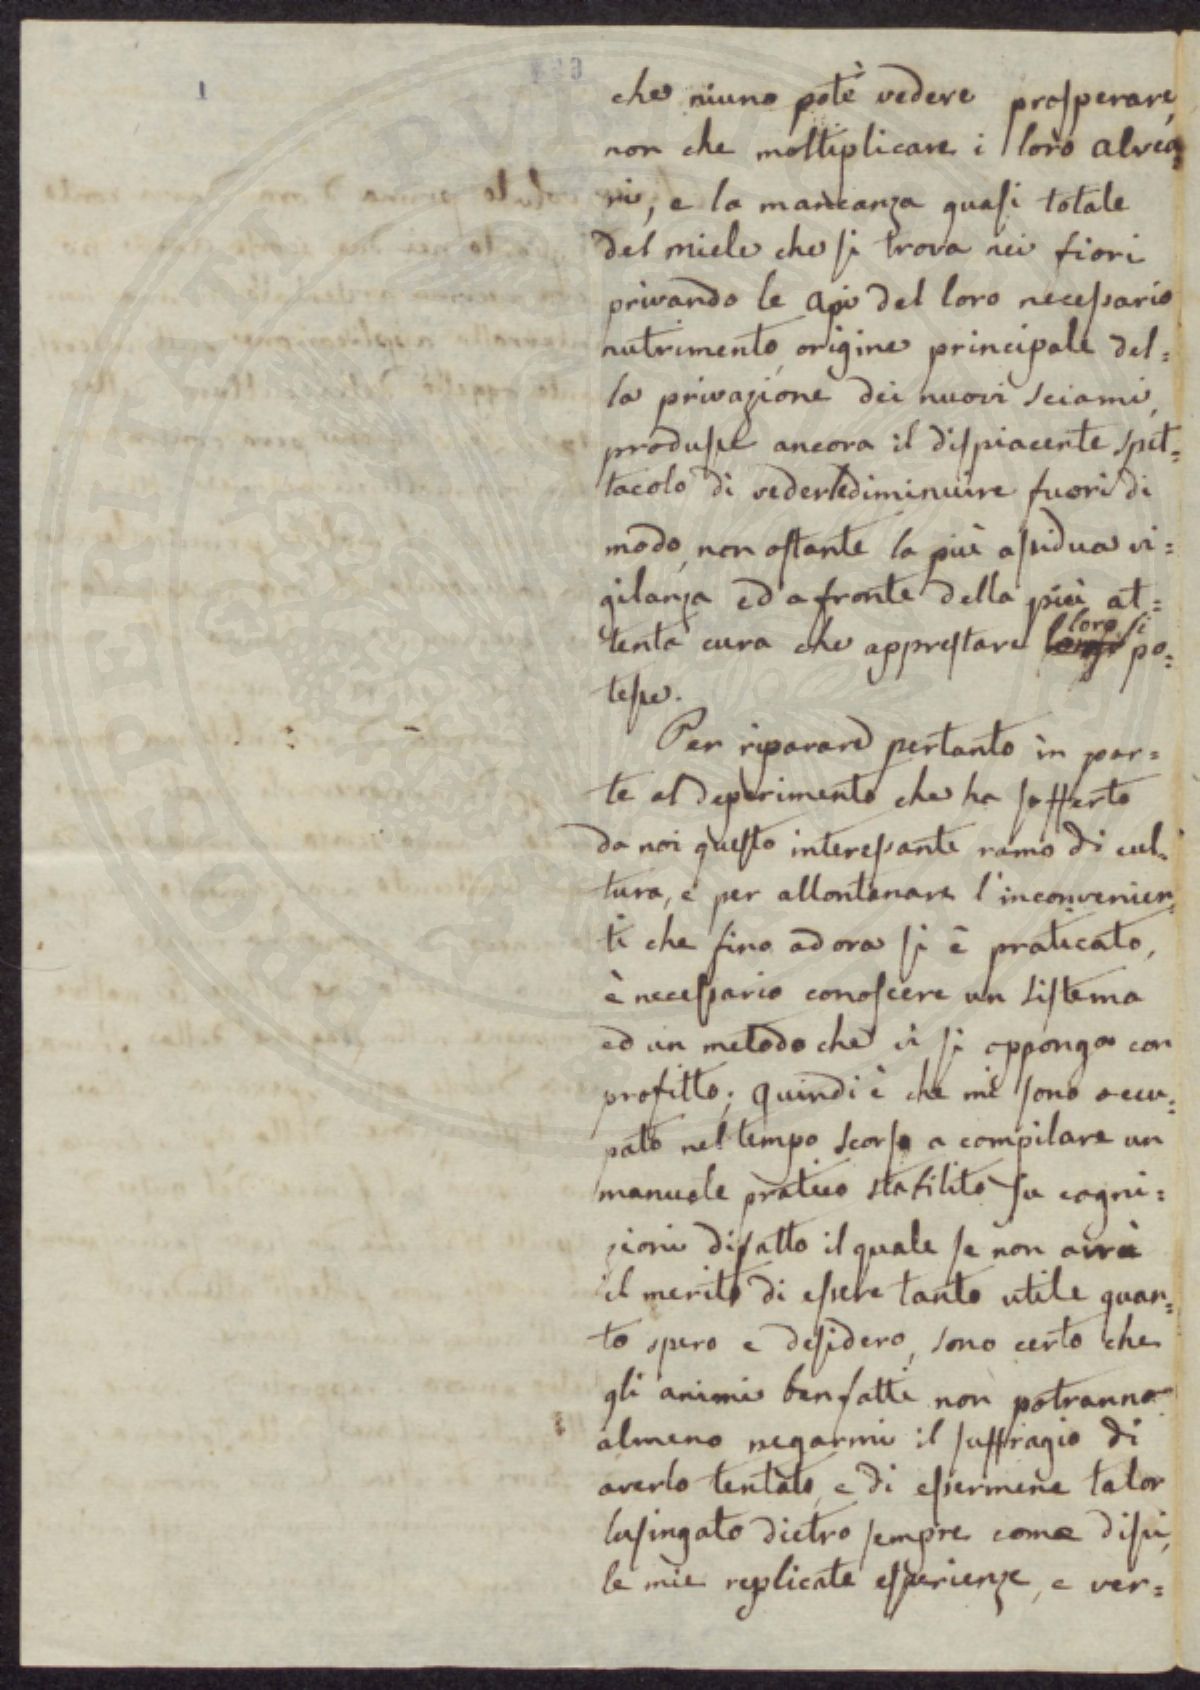 che niuno potè vedere prosperare,
non che moltiplicare i loro alvea=
ri, e la mancanza quasi totale
del miele che si trova nei fiori
privando le api del loro necessario
nutrimento, origine principale del=
la privazione dei nuovi sciami,
produsse ancora il dispiacente spet=
tacolo di vederle diminuire fuori di
modo, non ostante la più assidua vi=
gilanza ed a fronte della più at=
tenta cura che apprestare loro si po=
tesse.
Per riparare pertanto in par=
te al deperimento che ha sofferto
da noi questo interessante ramo di cul=
tura, e per allontanare l'inconvenien=
ti che fino ad ora si è praticato,
è necessario conoscere un sistema
ed un metodo che vi si opponga con
profitto; quindi è che mi sono occu=
pato nel tempo scorso a compilare un
manuale pratico stabilito su cogni=
zioni di fatto il quale se non avrà
il merito di essere tanto utile quan=
to spero e desidero, sono certo che
gli animi benfatti non potranno
almeno negarmi il suffragio di
averlo tentato, e di essermene talor
lusingato dietro sempre come dissi,
le mie replicate esperienze, e ver=